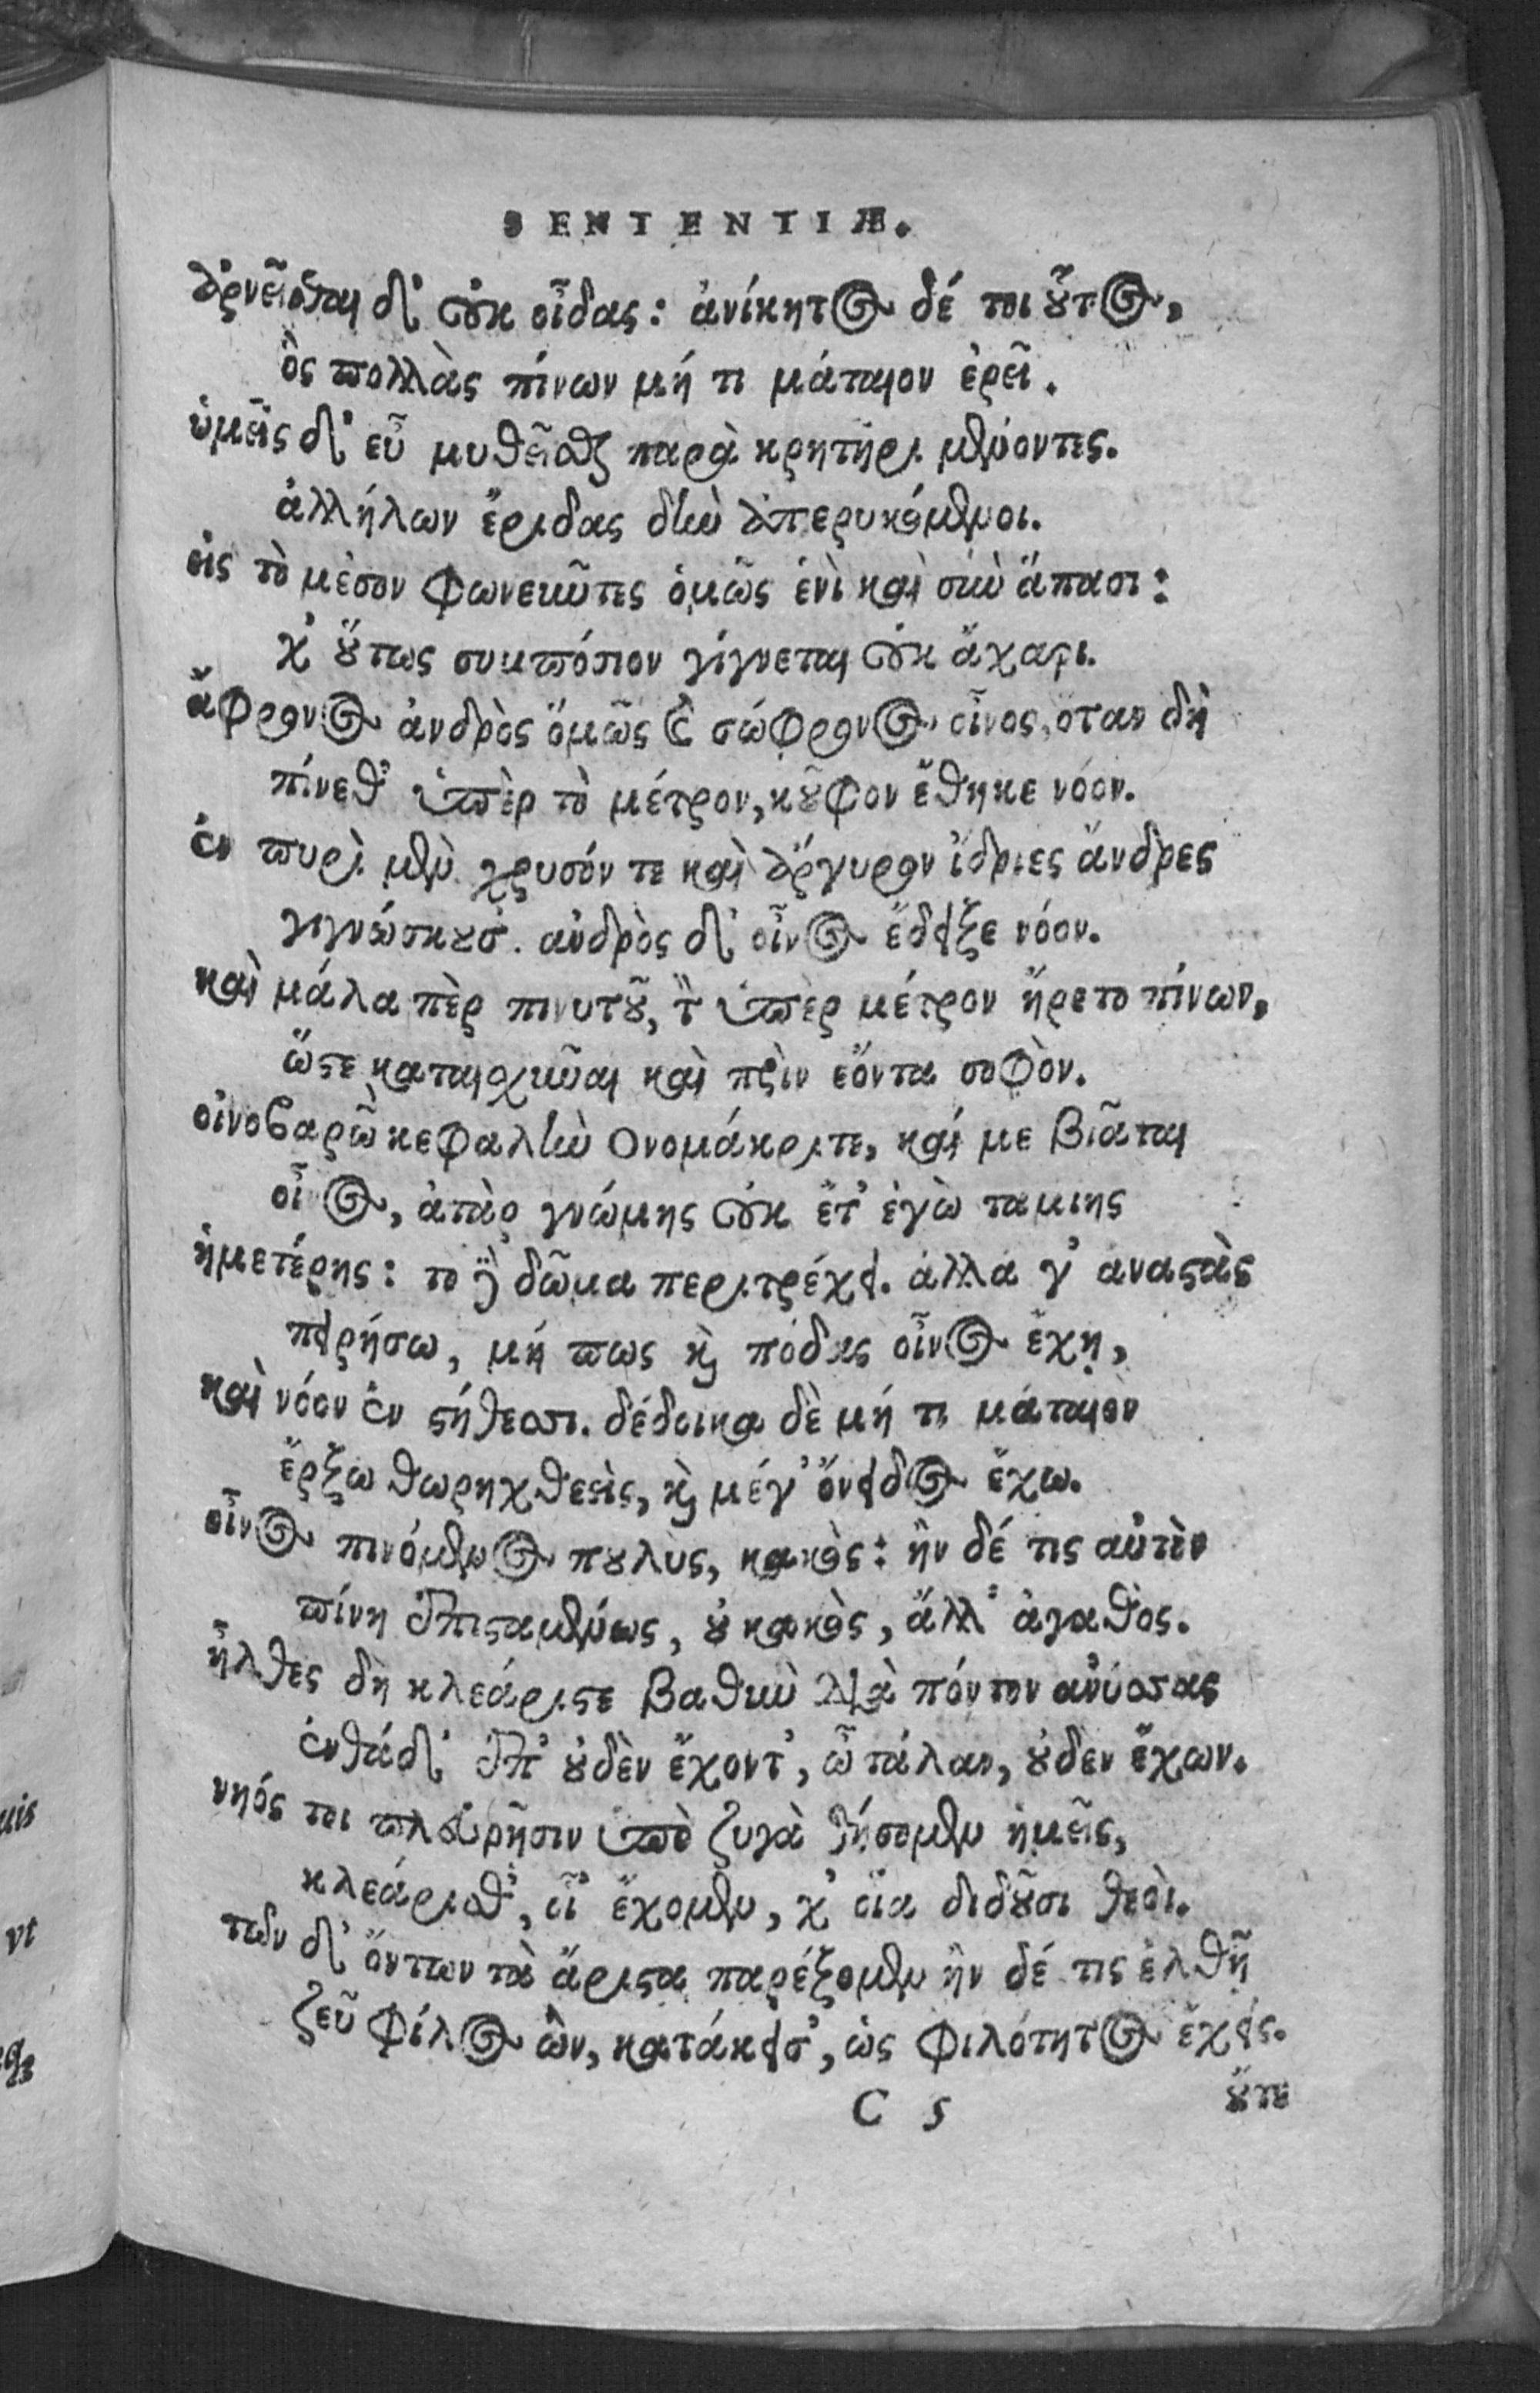 SENTENTIÆ.
ἀρνεῖσθαι δ' οὐκ οἶδας: ἀνίκητος δέ τοι οὗτος,
ὃς πολλὰς πίνων μή τι μάταιον ἐρεῖ.
ὑμεῖς δ' εὖ μυθεῖσθε παρὰ κρητῆρι μένοντες.
ἀλλήλων ἔριδας δὴν ἀπερυκόμενοι.
εἰς τὸ μέσον φωνεῦντες ὁμῶς ἑνὶ καὶ σὺν ἅπασι:
χ' οὕτως συμπόσιον γίγνεται οὐκ ἄχαρι.
ἄφρονος ἀνδρὸς ὅμῶς καὶ σώφρονος οἶνος, ὅταν δὴ
πίνεθ' ὑπὲρ τὸ μέτρον, κοῦφον ἔθηκε νόον.
ἐν πυρὶ μὲν χρυσόν τε καὶ ἄργυρον ἴδριες ἄνδρες
γιγνώσκουσ'. ἀνδρὸς δ' οἶνος ἔδειξε νόον.
καὶ μάλα πὲρ πινυτοῦ, τὸν ὑπὲρ μέτρον ἤρετο πίνων,
ὥστε καταισχῦναι καὶ πρὶν ἐόντα σοφὸν.
οἰνοβαρῶ κεφαλὴν Ονομάκριτε, καί με βιᾶται
οἶνος, ἀτὰρ γνώμης οὐκ ἔτ' ἐγὼ ταμιης
ἡμετέρης: το δὲ δῶμα περιτρέχει. ἀλλά γ' ἀναστὰς
πειρήσω, μή πως καὶ πόδας οἶνος ἔχῃ,
καὶ νόον ἐν στήθεσσι. δέδοικα δὲ μή τι μάταιον
ἔρξω θωρηχθεεὶς, καὶ μέγ' ὄνειδος ἔχω.
οἶνος πινόμενος πουλὺς, κακὸς: ἢν δέ τις αὐτὸν
πίνῃ ἐπισταμένως, οὐ κακὸς, ἄλλ' ἀγαθὸς.
ἦλθες δὴ κλεάριστε βαθὺν διὰ πόντον ἀνύσσας
ἐνθάδ' ἐπ' οὐδὲν ἔχοντ', ὦ τάλαν, οὐδεν ἔχων.
νηός τοι πλευρῇσιν ὑπὸ ζυγὰ θήσομεν ἡμεῖς,
κλεάρισθ', οἷ' ἔχομεν, χ' οἷα διδοῦσι θεοὶ.
τῶν δ' ὄντων τὰ ἄριστα παρέξομεν ἢν δέ τις ἐλθῇ
ζεῦ φίλος ὢν, κατάκεισ', ὡς φιλότητος ἔχεις.
C 5 οὔτε
uis
vt